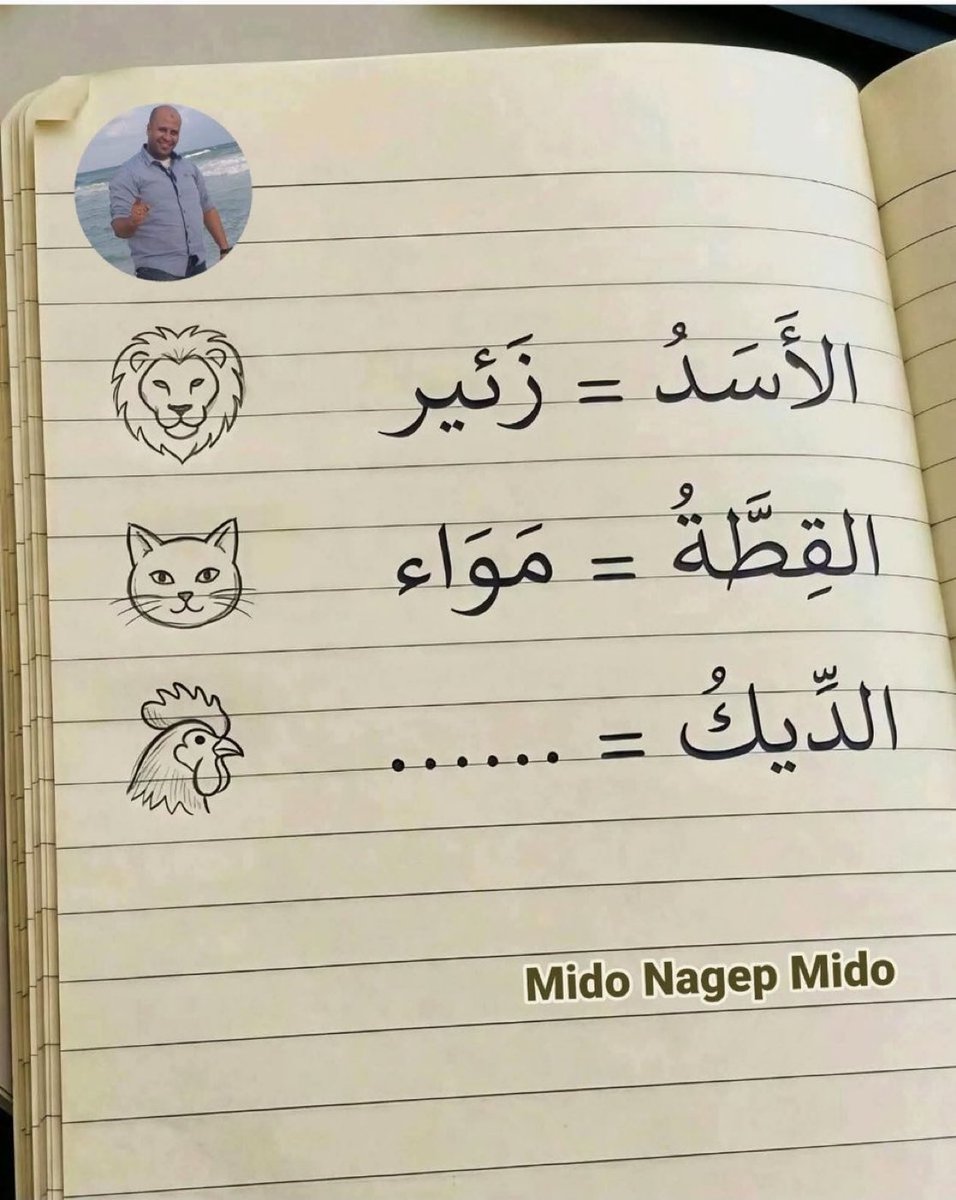 الأَسَدُ = زَئير
القِطَّةُ = مَوَاء
الدِّيكُ = ......
Mido Nagep Mido